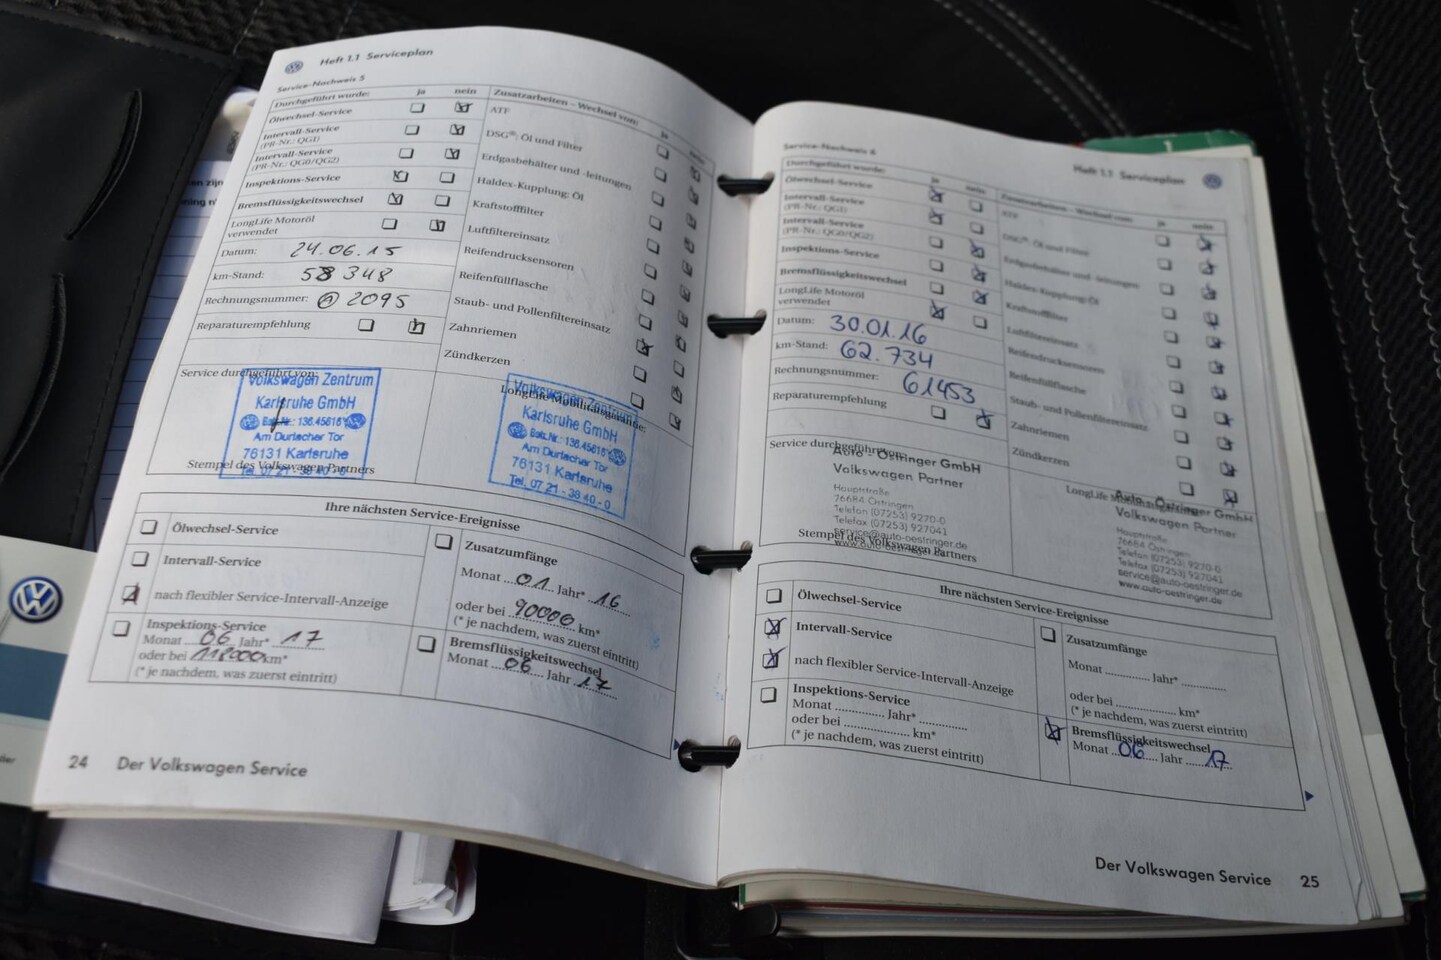 Heft 1.1 Serviceplan
Service-Nachweis 5
Durchgeführt wurde: ja nein
Ölwechsel-Service
Intervall-Service
(PR-Nr.: QG1)
Intervall-Service
(PR-Nr.: QG0/QG2)
Inspektions-Service
Bremsflüssigkeitswechsel
LongLife Motoröl
verwendet
Datum: 24.06.15
km-Stand: 58348
Rechnungsnummer: 2095
Reparaturempfehlung
Zusatzarbeiten – Wechsel von: ja nein
ATF
DSG®: Öl und Filter
Erdgasbehälter und -leitungen
Haldex-Kupplung: Öl
Kraftstofffilter
Luftfiltereinsatz
Reifendrucksensoren
Reifenfüllflasche
Staub- und Pollenfiltereinsatz
Zahnriemen
Zündkerzen
Service durchgeführt von:
Volkswagen Zentrum
Karlsruhe GmbH
Am Durlacher Tor
76131 Karlsruhe
Tel. 07 21 - 38 40 - 0
Stempel des Volkswagen Partners
LongLife Mobilitätsgarantie:
Volkswagen Zentrum
Karlsruhe GmbH
Am Durlacher Tor
76131 Karlsruhe
Tel. 07 21 - 38 40 - 0
Ihre nächsten Service-Ereignisse
Ölwechsel-Service
Intervall-Service
nach flexibler Service-Intervall-Anzeige
Inspektions-Service
Monat 06 Jahr* 17
oder bei 118000 km*
(* je nachdem, was zuerst eintritt)
Zusatzumfänge
Monat 01 Jahr* 16
oder bei 90000 km*
(* je nachdem, was zuerst eintritt)
Bremsflüssigkeitswechsel
Monat 06 Jahr 17
24 Der Volkswagen Service
Heft 1.1 Serviceplan
Service-Nachweis 6
Durchgeführt wurde: ja nein
Ölwechsel-Service
Intervall-Service
(PR-Nr.: QG1)
Intervall-Service
(PR-Nr.: QG0/QG2)
Inspektions-Service
Bremsflüssigkeitswechsel
LongLife Motoröl
verwendet
Datum: 30.01.16
km-Stand: 62.734
Rechnungsnummer: 61453
Reparaturempfehlung
Zusatzarbeiten – Wechsel von: ja nein
ATF
DSG®: Öl und Filter
Erdgasbehälter und -leitungen
Haldex-Kupplung: Öl
Kraftstofffilter
Luftfiltereinsatz
Reifendrucksensoren
Reifenfüllflasche
Staub- und Pollenfiltereinsatz
Zahnriemen
Zündkerzen
Service durchgeführt von:
Auto - Östringer GmbH
Volkswagen Partner
Hauptstraße
76684 Östringen
Telefon (07253) 9270-0
Telefax (07253) 927041
service@auto-oestringer.de
www.auto-oestringer.de
Stempel des Volkswagen Partners
LongLife
Auto - Östringer GmbH
Volkswagen Partner
Hauptstraße
76684 Östringen
Telefon (07253) 9270-0
Telefax (07253) 927041
service@auto-oestringer.de
www.auto-oestringer.de
Ihre nächsten Service-Ereignisse
Ölwechsel-Service
Intervall-Service
nach flexibler Service-Intervall-Anzeige
Inspektions-Service
Monat ............. Jahr* .............
oder bei .................. km*
(* je nachdem, was zuerst eintritt)
Zusatzumfänge
Monat ............. Jahr* .............
oder bei .................. km*
(* je nachdem, was zuerst eintritt)
Bremsflüssigkeitswechsel
Monat 06 Jahr 17
Der Volkswagen Service 25